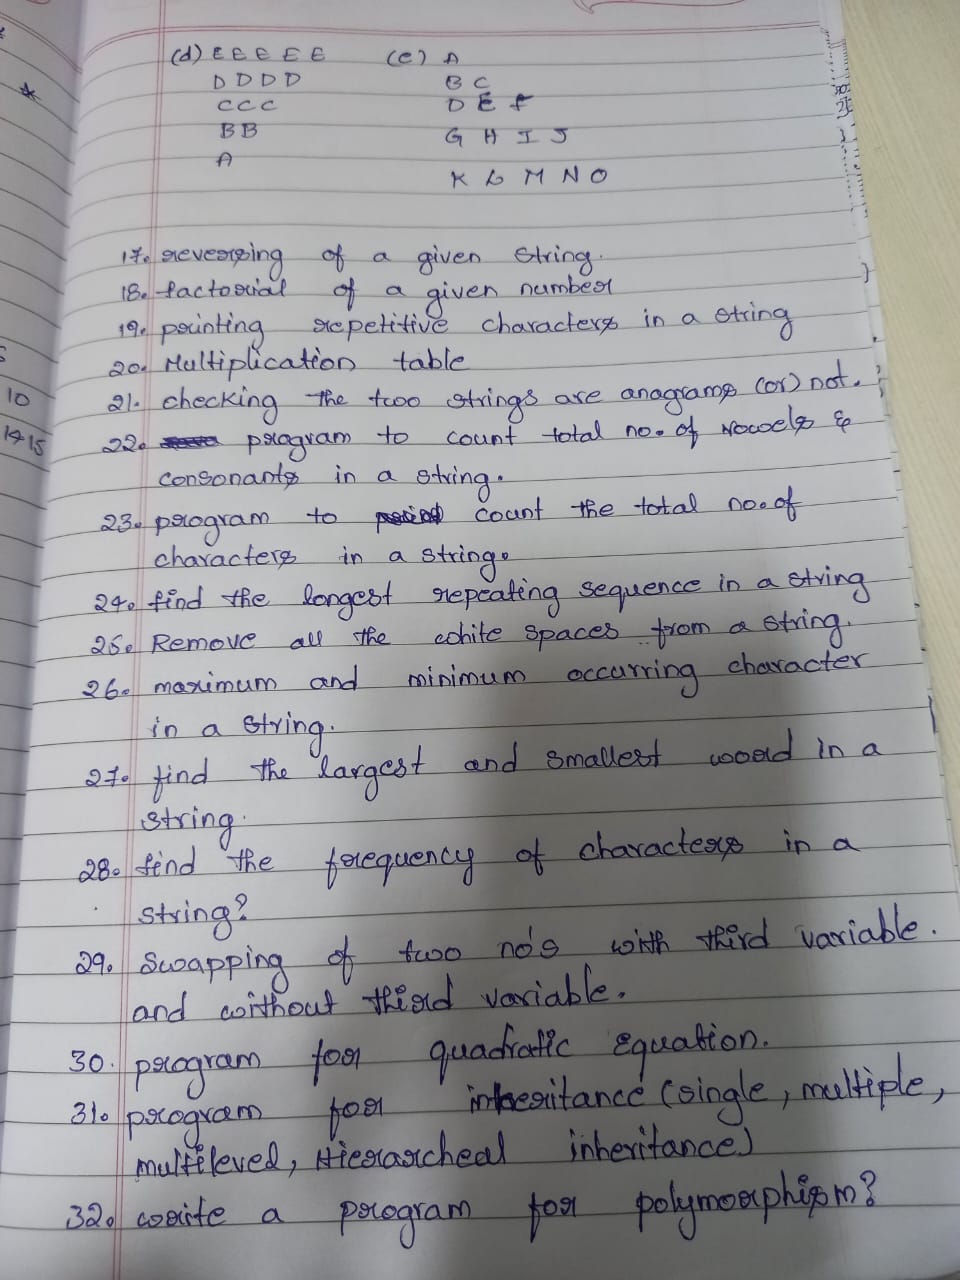 (d) E E E E E (e) A
D D D D B C
C C C D E F
B B G H I J
A
K L M N O
17. reversing of a given string.
18. factorial of a given number
19. printing repetitive characters in a string
20. Multiplication table
21. checking the two strings are anagrams (or) not.
22. program to count total no. of vowels &
consonants in a string.
23. program to count the total no. of
characters in a string.
24. find the longest repeating sequence in a string
25. Remove all the white spaces from a string.
26. maximum and minimum occurring character
in a string.
27. find the largest and smallest word in a
string.
28. find the frequency of characters in a
string?
29. Swapping of two no's with third variable.
and without third variable.
30. program for quadratic equation.
31. program for inheritance (single, multiple,
multileved, Hierarcheal inheritance)
32. write a program for polymorphism?
10
14 15